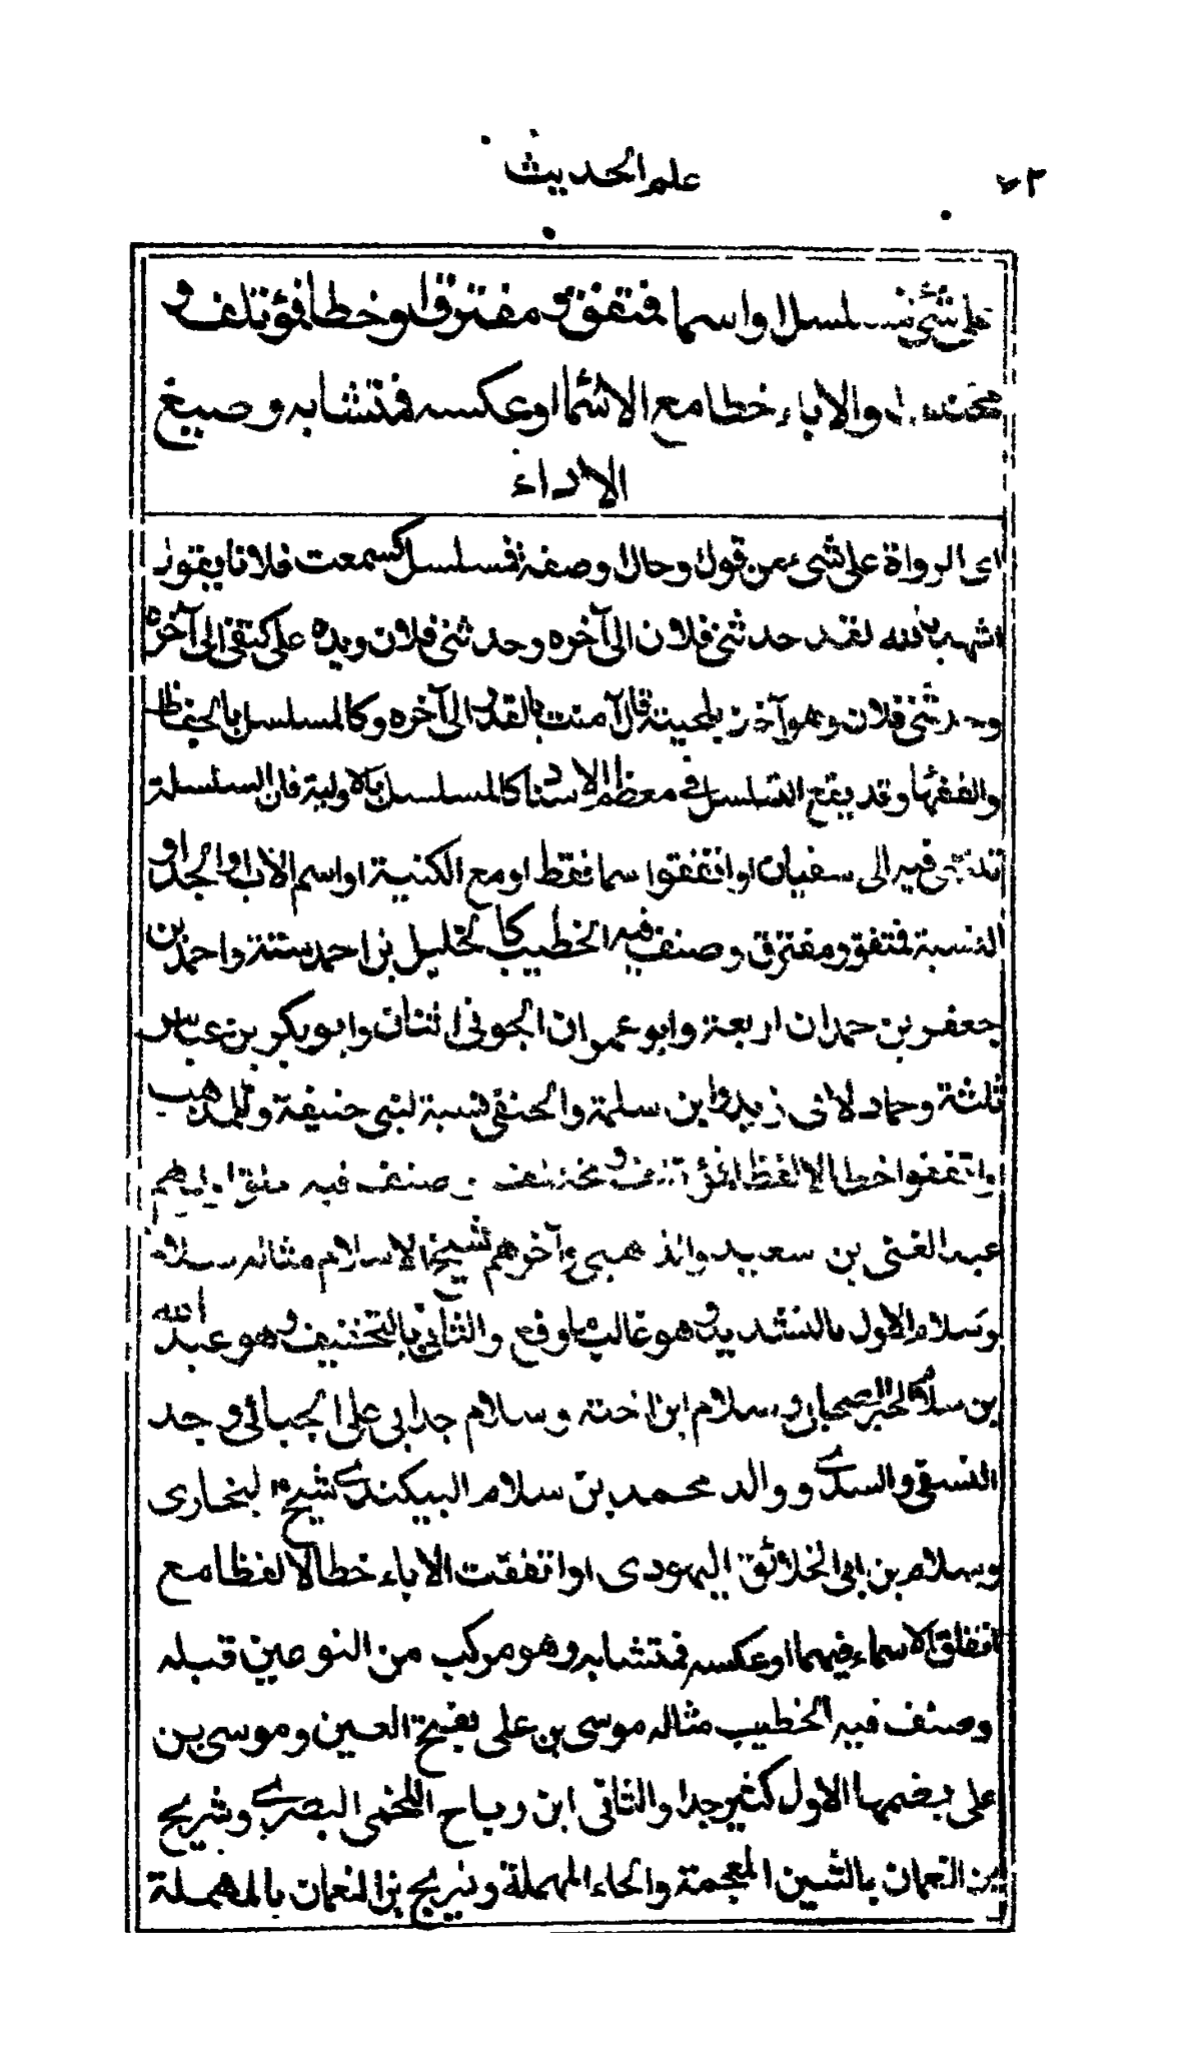 علم الحديث
على شئ فمسلسل او اسما فمتفق و مفترق او خطا فمؤتلف و
مختلف او الاباء خطا مع الاسما او عكسه فمتشابه وصيغ
الاداء
اى الرواة على شىء من قول وحال او صفة فمسلسل كسمعت فلانا يقول
اشهد بالله لقد حدثنى فلان الى آخره وحدثنى فلان ويده على كتفى الى آخره
وحدثنى فلان وهو آخذ بلحيته قال آمنت بالقدر الى آخره وكالمسلسل بالحفاظ
والفقهاء وقد يقع التسلسل فى معظم الاسناد كالمسلسل بالاولية فان السلسلة
تنتهى فيه الى سفيان او اتفقوا اسما فقط او مع الكنية او اسم الاب او الجد او
النسبة فمتفق ومفترق وصنف فيه الخطيب كالخليل بن احمد ستة واحمد بن
جعفر بن حمدان اربعة وابو عمران الجونى اثنان وابو بكر بن عياش
ثلثة وحماد لابن زيد وابن سلمة والحنفى نسبة لبنى حنيفة وللمذهب
او اتفقوا خطا لا لفظا فمؤتلف ومختلف وصنف فيه خلق اولهم
عبد الغنى بن سعيد والذهبى وآخرهم شيخ الاسلام مثاله سلام
وسلام الاول بالتشديد وهو غالب ما وقع والثانى بالتخفيف وهو عبد الله
بن سلام الحبر الصحابى وسلام ابن اخته وسلام جد ابى على الجبائى وجد
النسفى والسدى ووالد محمد بن سلام البيكندى شيخ البخارى
وسلام بن ابى الخلائق اليهودى او اتفقت الاباء خطا لا لفظا مع
اتفاق الاسماء فيهما او عكسه فمتشابه وهو مركب من النوعين قبله
وصنف فيه الخطيب مثاله موسى بن على بفتح العين وموسى بن
على بضمها الاول كثير جدا والثانى ابن رباح اللخمى البصرى وشريح
بن النعمان بالشين المعجمة والحاء المهملة وسريج بن النعمان بالمهملة